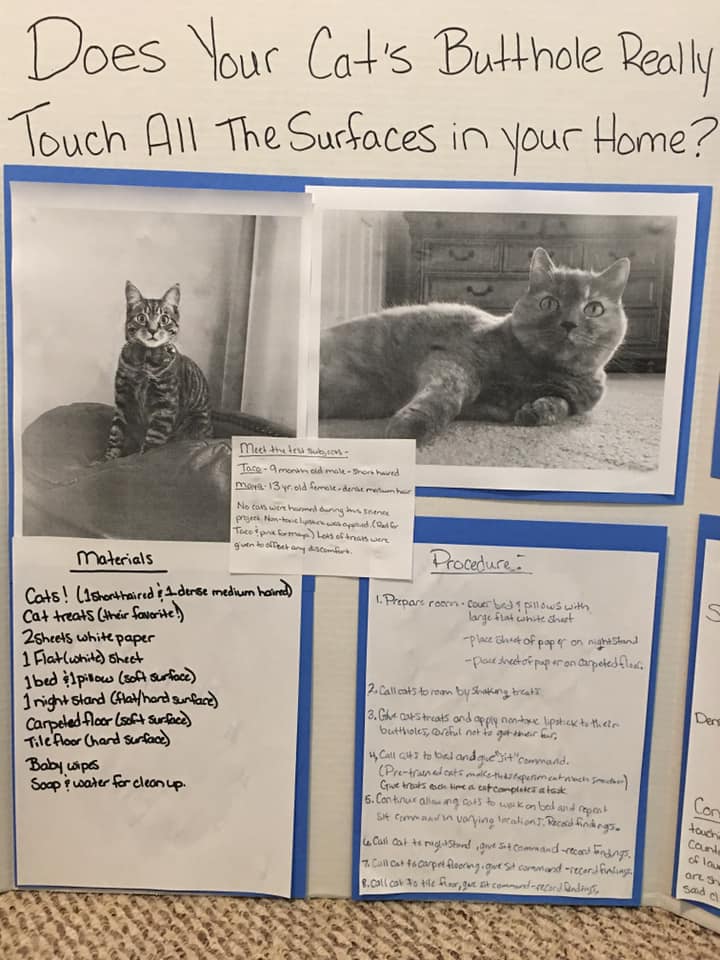 Does Your Cat's Butthole Really
Touch All The Surfaces in your Home?
Meet the test subjects -
Taco - 9 month old male - short haired
Maya - 13 yr. old female - dense medium hair
No cats were harmed during this science
project. Non-toxic lipstick was applied. (Red for
Taco & pink for Maya) Lots of treats were
given to offset any discomfort.
Materials
Cats! (1 shorthaired & 1 dense medium haired)
Cat treats (their favorite!)
2 sheets white paper
1 Flat (white) sheet
1 bed & 1 pillow (soft surface)
1 night stand (flat/hard surface)
Carpeted floor (soft surface)
Tile floor (hard surface)
Baby wipes
Soap & water for clean up.
Procedure:
1. Prepare room - cover bed & pillows with
large flat white sheet
- place sheet of paper on nightstand
- place sheet of paper on carpeted floor.
2. Call cats to room by shaking treats
3. Give cats treats and apply non-toxic lipstick to their
buttholes, careful not to get their fur.
4. Call cats to bed and give "sit" command.
(Pre-trained cats make this experiment much smoother)
Give treats each time a cat completes a task
5. Continue allowing cats to walk on bed and repeat
sit command in varying locations. Record findings.
6. Call cat to nightstand, give sit command - record findings.
7. Call cat to carpet flooring, give sit command - record findings.
8. Call cat to tile floor, give sit command - record findings.
S
Den
Con
touch
Count
of lau
are sh
said c